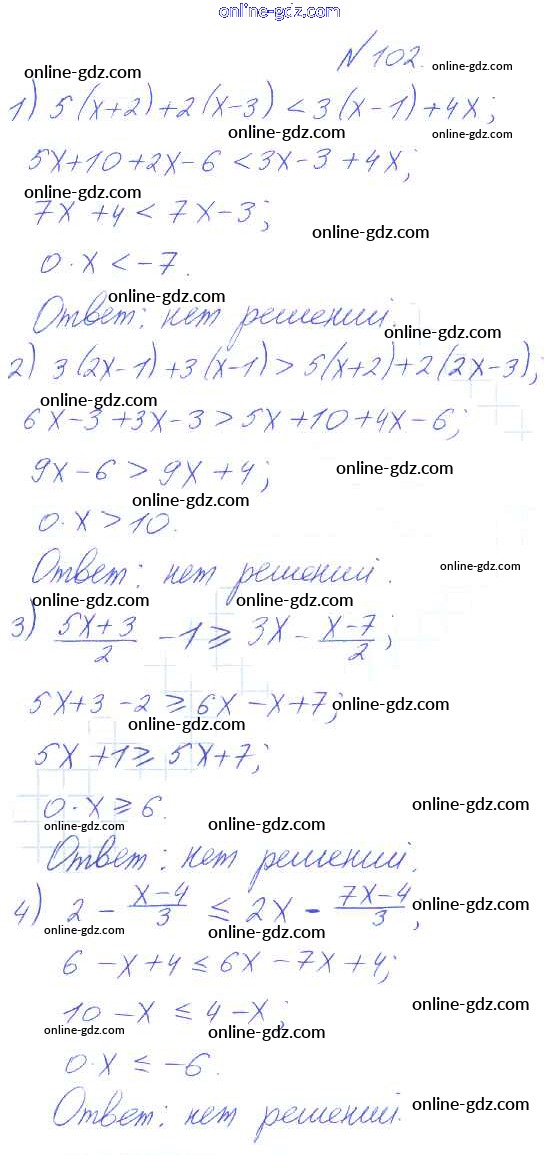 online-gdz.com
N 102.
online-gdz.com online-gdz.com
1) 5(x+2)+2(x-3) < 3(x-1)+4x;
online-gdz.com online-gdz.com
5x+10+2x-6 < 3x-3+4x;
online-gdz.com
7x+4 < 7x-3;
online-gdz.com
0·x < -7.
online-gdz.com
Ответ: нет решений.
online-gdz.com
2) 3(2x-1)+3(x-1) > 5(x+2)+2(2x-3);
online-gdz.com
6x-3+3x-3 > 5x+10+4x-6;
9x-6 > 9x+4; online-gdz.com
online-gdz.com
0·x > 10.
Ответ: нет решений. online-gdz.com
online-gdz.com online-gdz.com
3) \frac{5x+3}{2} - 1 ≥ 3x - \frac{x-7}{2};
5x+3-2 ≥ 6x-x+7; online-gdz.com
online-gdz.com
5x+1 ≥ 5x+7;
0·x ≥ 6. online-gdz.com
online-gdz.com online-gdz.com
Ответ: нет решений.
4) 2 - \frac{x-4}{3} ≤ 2x - \frac{7x-4}{3}; online-gdz.com
online-gdz.com online-gdz.com
6-x+4 ≤ 6x-7x+4;
10-x ≤ 4-x; online-gdz.com
online-gdz.com online-gdz.com
0·x ≤ -6.
Ответ: нет решений. online-gdz.com